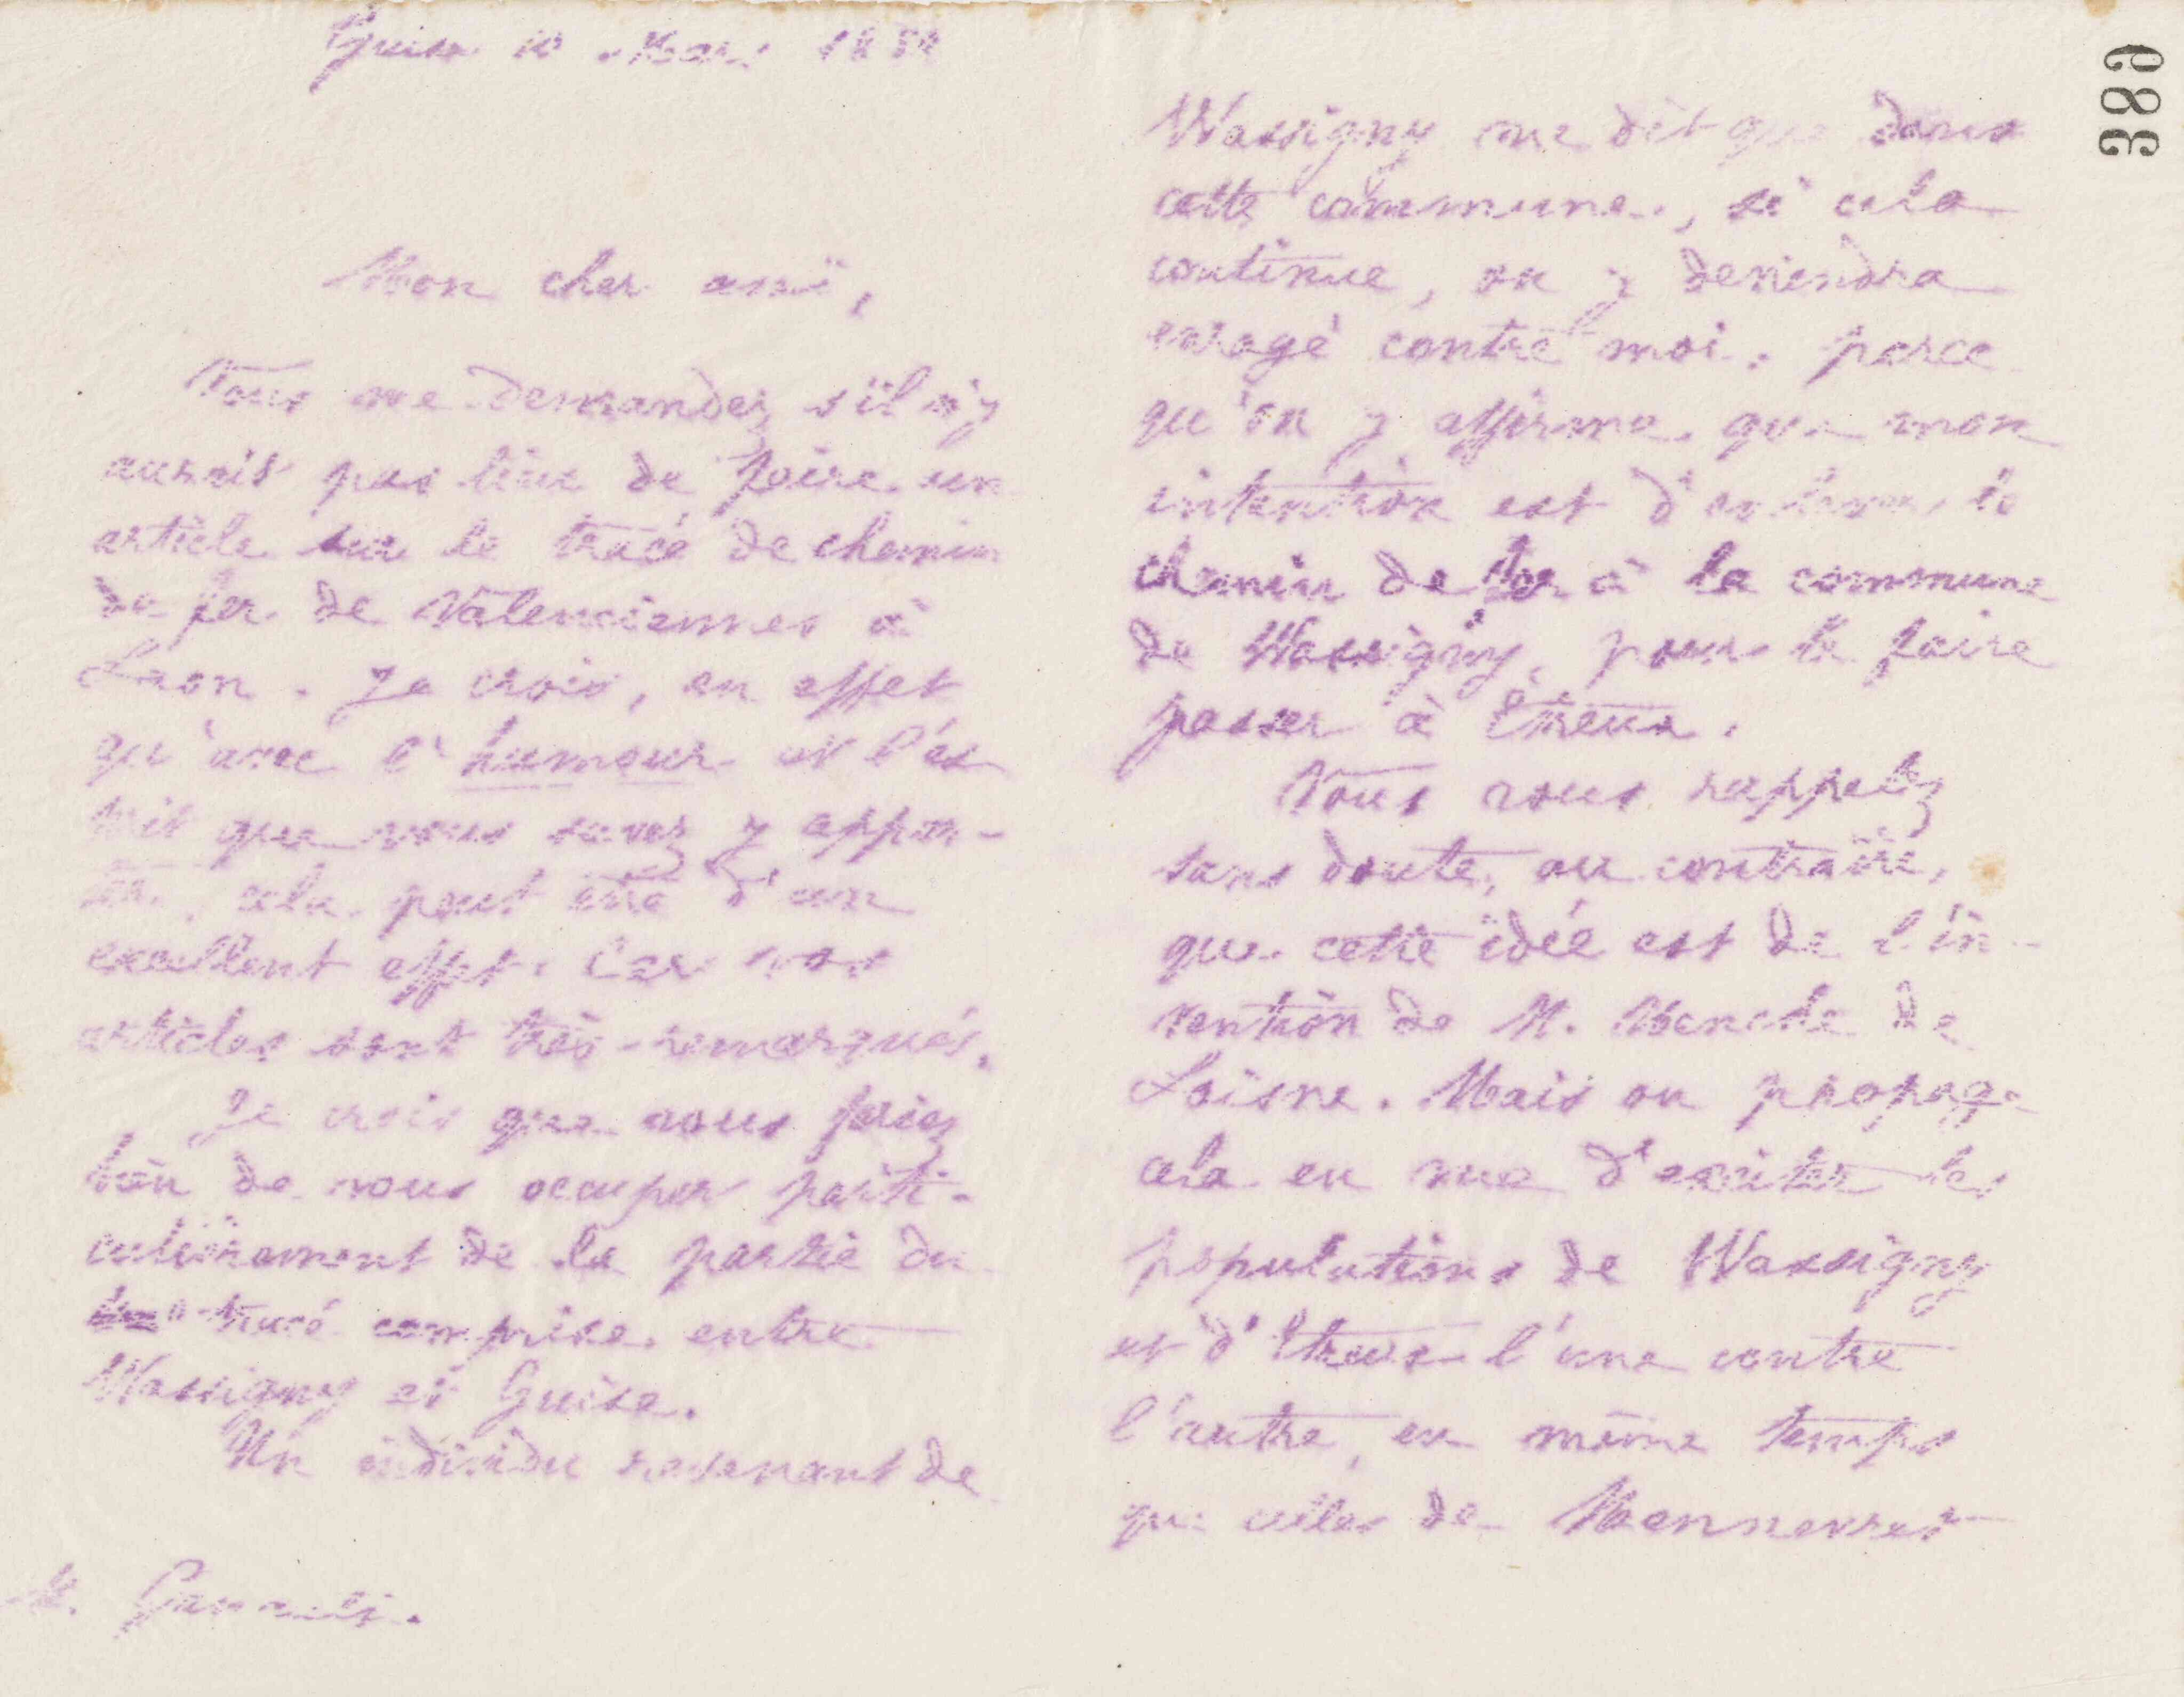 Guise 10 Mars 188
Mon cher ami,
Vous me demandez s'il n'y
aurait pas lieu de faire un
article sur le tracé de chemin
de fer de Valenciennes à
Laon. Je crois, en effet
qu'avec l'humour et l'es
prit que vous savez y appor-
ter, cela peut être d'un
excellent effet. Car vos
articles sont très-remarqués.
Je crois que vous feriez
bien de vous occuper parti-
culièrement de la partie du
tracé comprise entre
Wassigny et Guise.
Un individu revenant de
M.
Wassigny me dit que dans
cette commune, si cela
continue, on y deviendra
enragé contre moi, parce
qu'on y affirme que mon
intention est d'enlever le
chemin de fer à la commune
de Wassigny, pour le faire
passer à Étreux.
Vous vous rappelez
sans doute, au contraire,
que cette idée est de l'in-
vention de M. Menche de
Loisne. Mais on propage
cela en vue d'exciter les
populations de Wassigny
et d'Étreux l'une contre
l'autre, en même temps
que celles de Mennevret
389